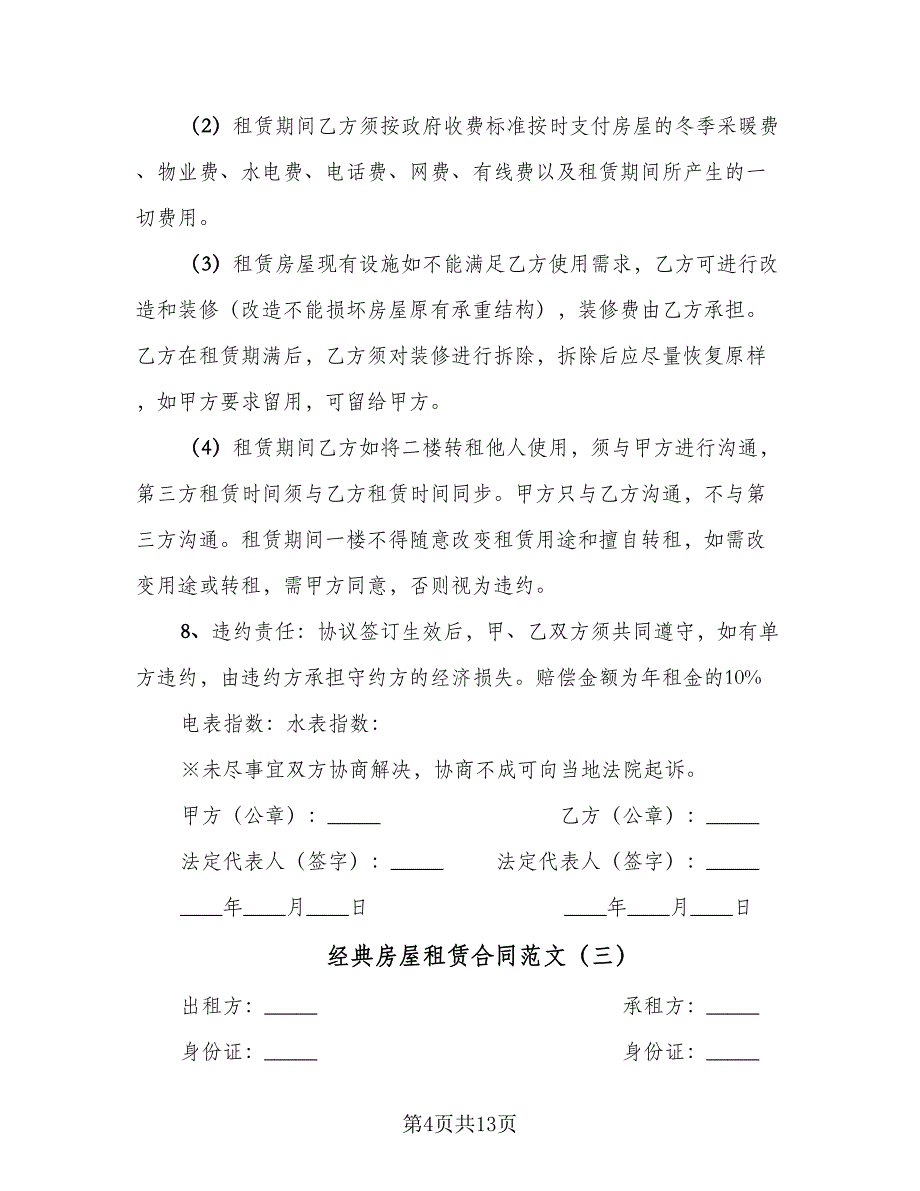 （2）租赁期间乙方须按政府收费标准按时支付房屋的冬季采暖费
、物业费、水电费、电话费、网费、有线费以及租赁期间所产生的一
切费用。
（3）租赁房屋现有设施如不能满足乙方使用需求，乙方可进行改
造和装修（改造不能损坏房屋原有承重结构），装修费由乙方承担。
乙方在租赁期满后，乙方须对装修进行拆除，拆除后应尽量恢复原样
，如甲方要求留用，可留给甲方。
（4）租赁期间乙方如将二楼转租他人使用，须与甲方进行沟通，
第三方租赁时间须与乙方租赁时间同步。甲方只与乙方沟通，不与第
三方沟通。租赁期间一楼不得随意改变租赁用途和擅自转租，如需改
变用途或转租，需甲方同意，否则视为违约。
8、违约责任：协议签订生效后，甲、乙双方须共同遵守，如有单
方违约，由违约方承担守约方的经济损失。赔偿金额为年租金的10%
电表指数：水表指数：
※未尽事宜双方协商解决，协商不成可向当地法院起诉。
甲方（公章）：_____ 乙方（公章）：_____
法定代表人（签字）：_____ 法定代表人（签字）：_____
____年____月____日 ____年____月____日
经典房屋租赁合同范文（三）
出租方：_____ 承租方：_____
身份证：_____ 身份证：_____
第4页共13页